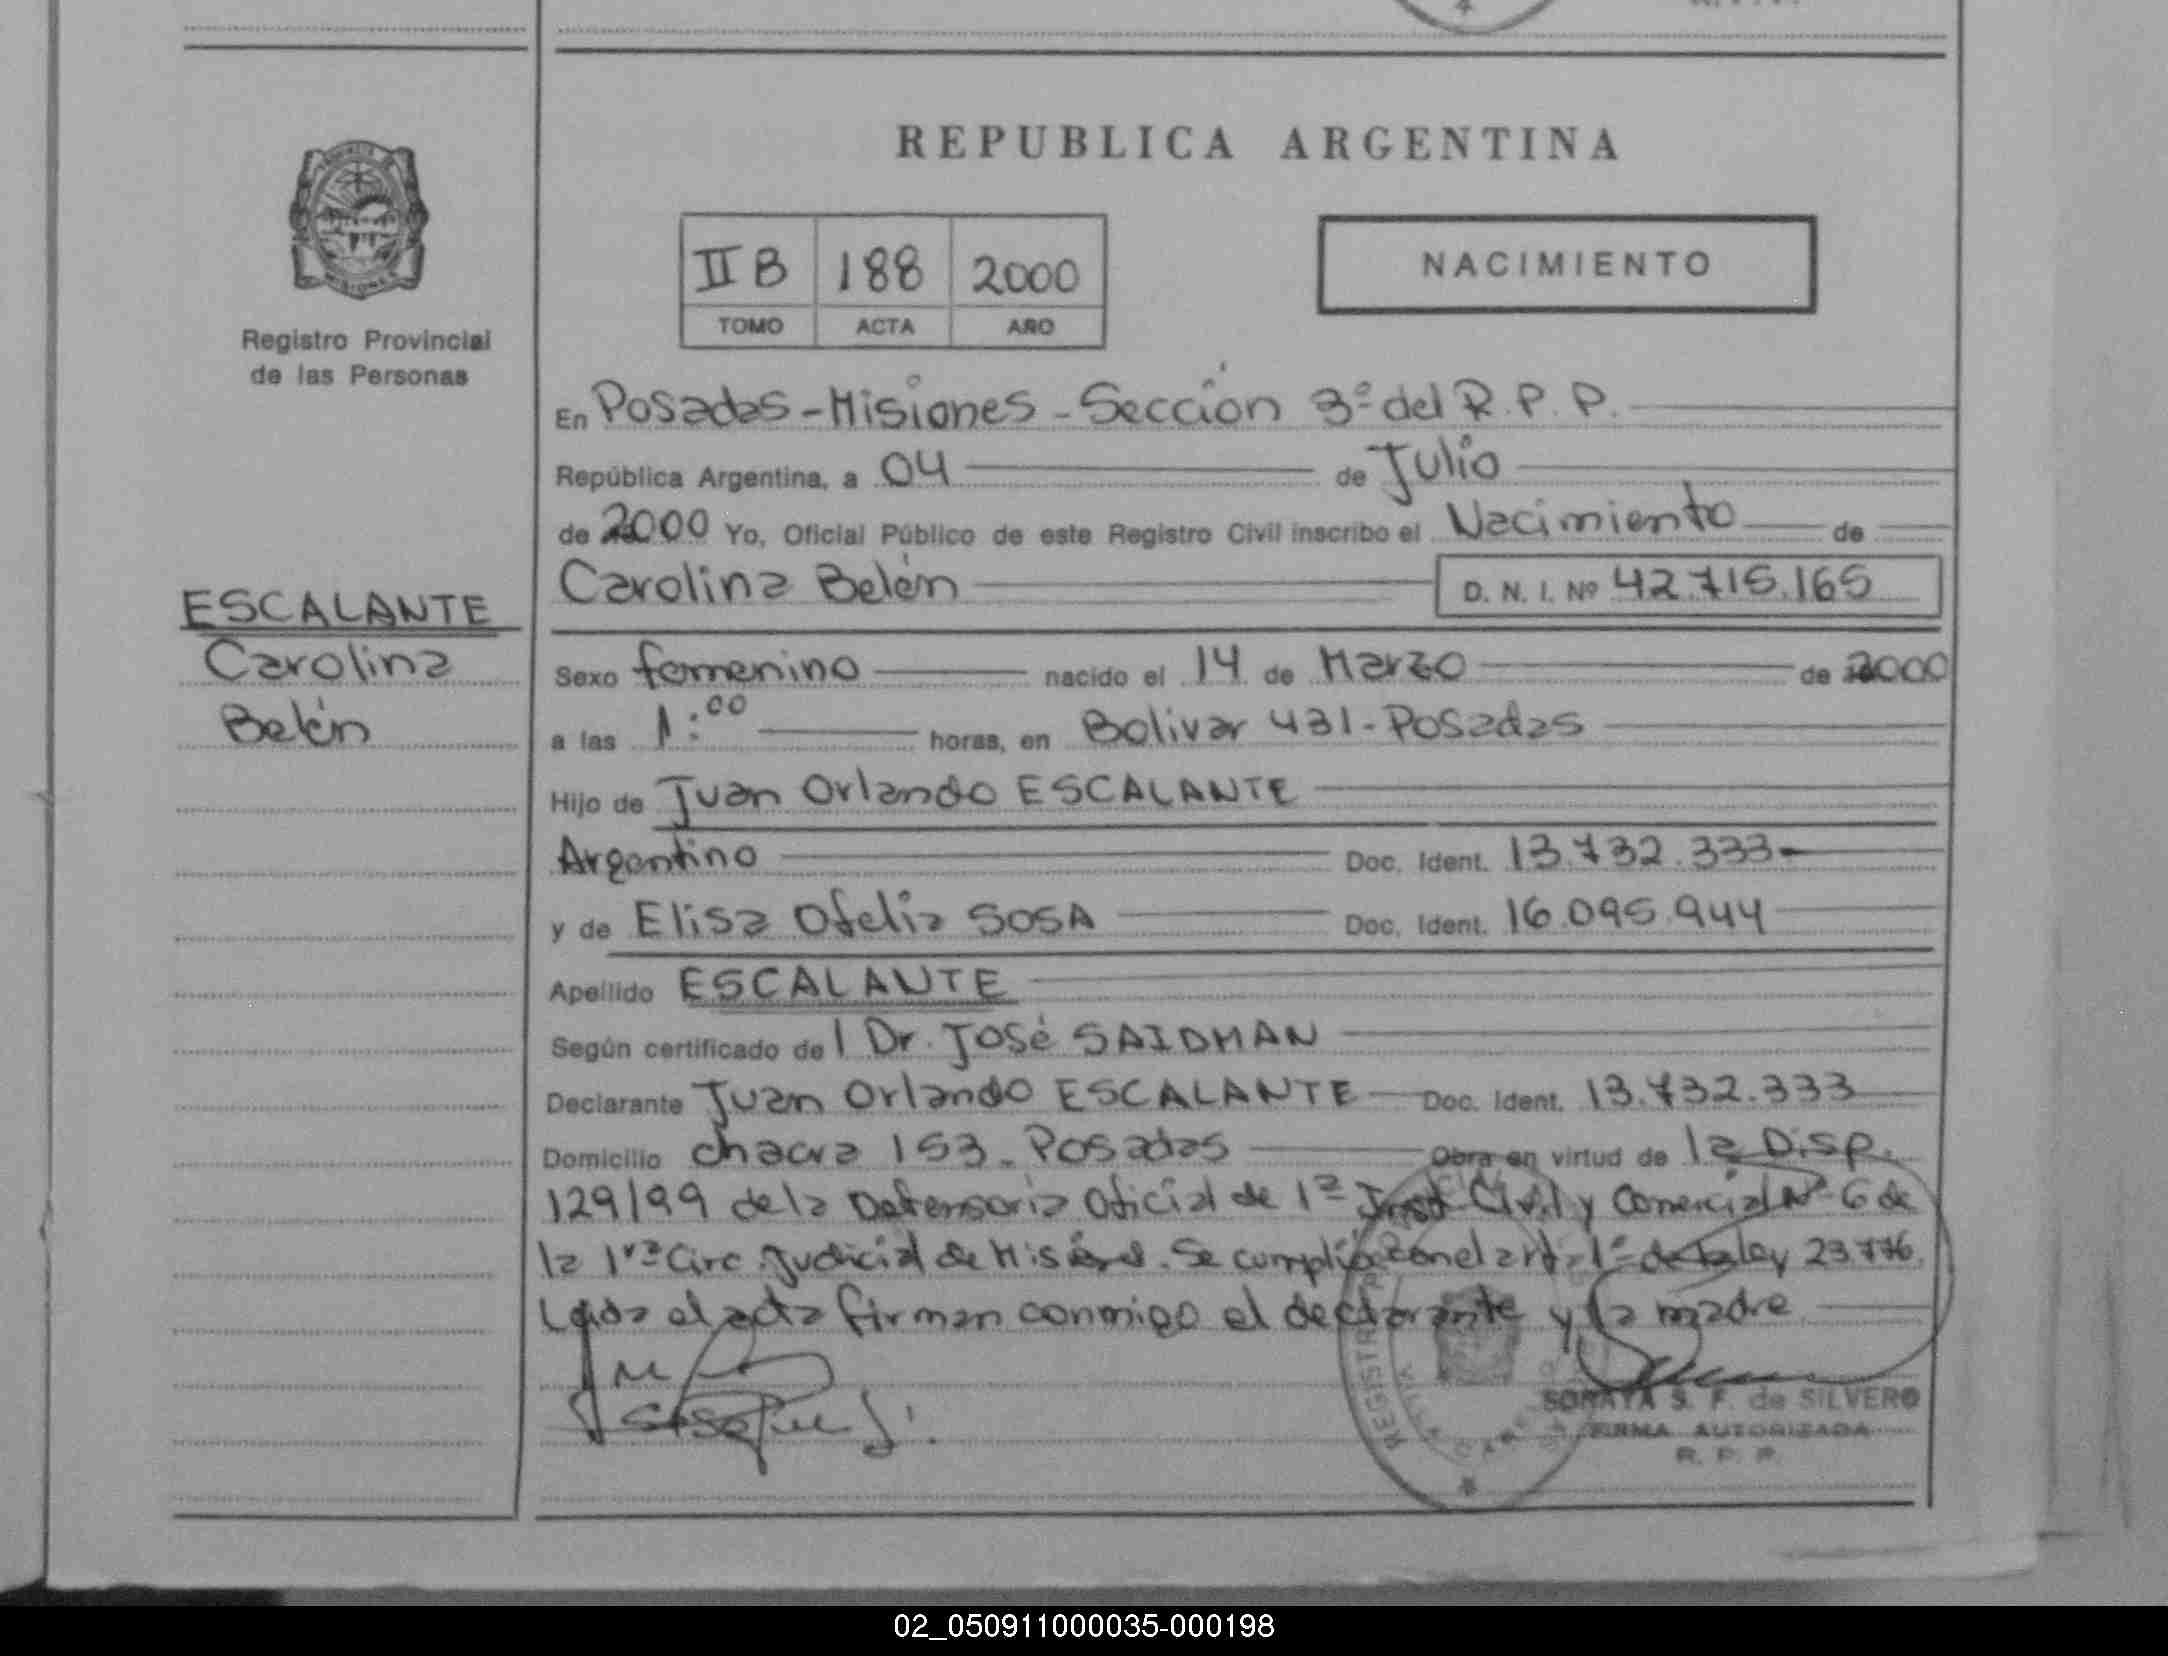 REPUBLICA ARGENTINA
II B 188 2000
TOMO ACTA AÑO
NACIMIENTO
Registro Provincial
de las Personas
En Posadas - Misiones - Sección 3º del R.P.P.
República Argentina, a 04 de Julio
de 2000 Yo, Oficial Público de este Registro Civil inscribo el Nacimiento de
Carolina Belén D. N. I. Nº 42.715.165
ESCALANTE
Carolina
Belén
Sexo femenino nacido el 14 de Marzo de 2000
a las 1:00 horas, en Bolivar 431 - Posadas
Hijo de Juan Orlando ESCALANTE
Argentino Doc. Ident. 13.732.333
y de Elisa Ofelia SOSA Doc. Ident. 16.095.944
Apellido ESCALANTE
Según certificado del Dr. José SAIDMAN
Declarante Juan Orlando ESCALANTE Doc. Ident. 13.732.333
Domicilio chacra 153 - Posadas Obra en virtud de la Disp.
129/99 de la Defensoria Oficial de 1ª Inst. Civil y Comercial Nº 6 de
la 1ra Circ. Judicial de Misiones. Se cumplió con el art. 1º de la ley 23.776.
Leida el acta firman conmigo el declarante y la madre
SORAYA S. F. de SILVERO
FIRMA AUTORIZADA
R. P. P.
02_050911000035-000198